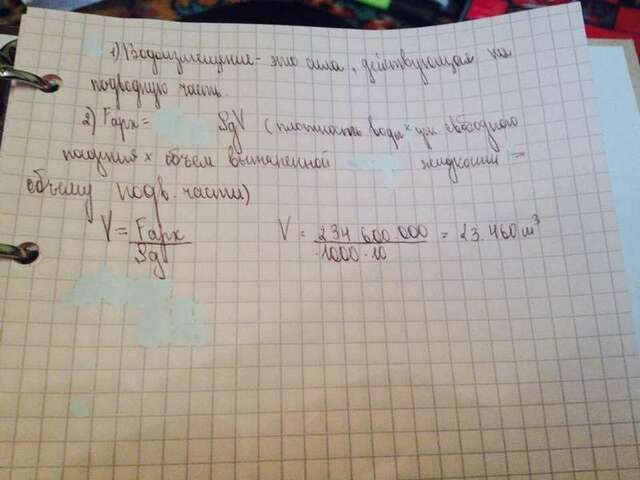 1) Водоизмещение - это сила, действующая на
подводную часть.
2) Fарх = SgV (плотность воды × уск свободного
падения × объём вытисненной жидкости =
объёму подв. части)
V = Fарх / Sg V = 234 600 000 / 1000 · 10 = 23.460 м³